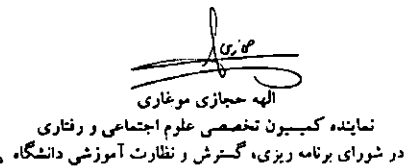 الهه حجازی موغاری
نماینده کمیسیون تخصصی علوم اجتماعی و رفتاری
در شورای برنامه ریزی، گسترش و نظارت آموزشی دانشگاه